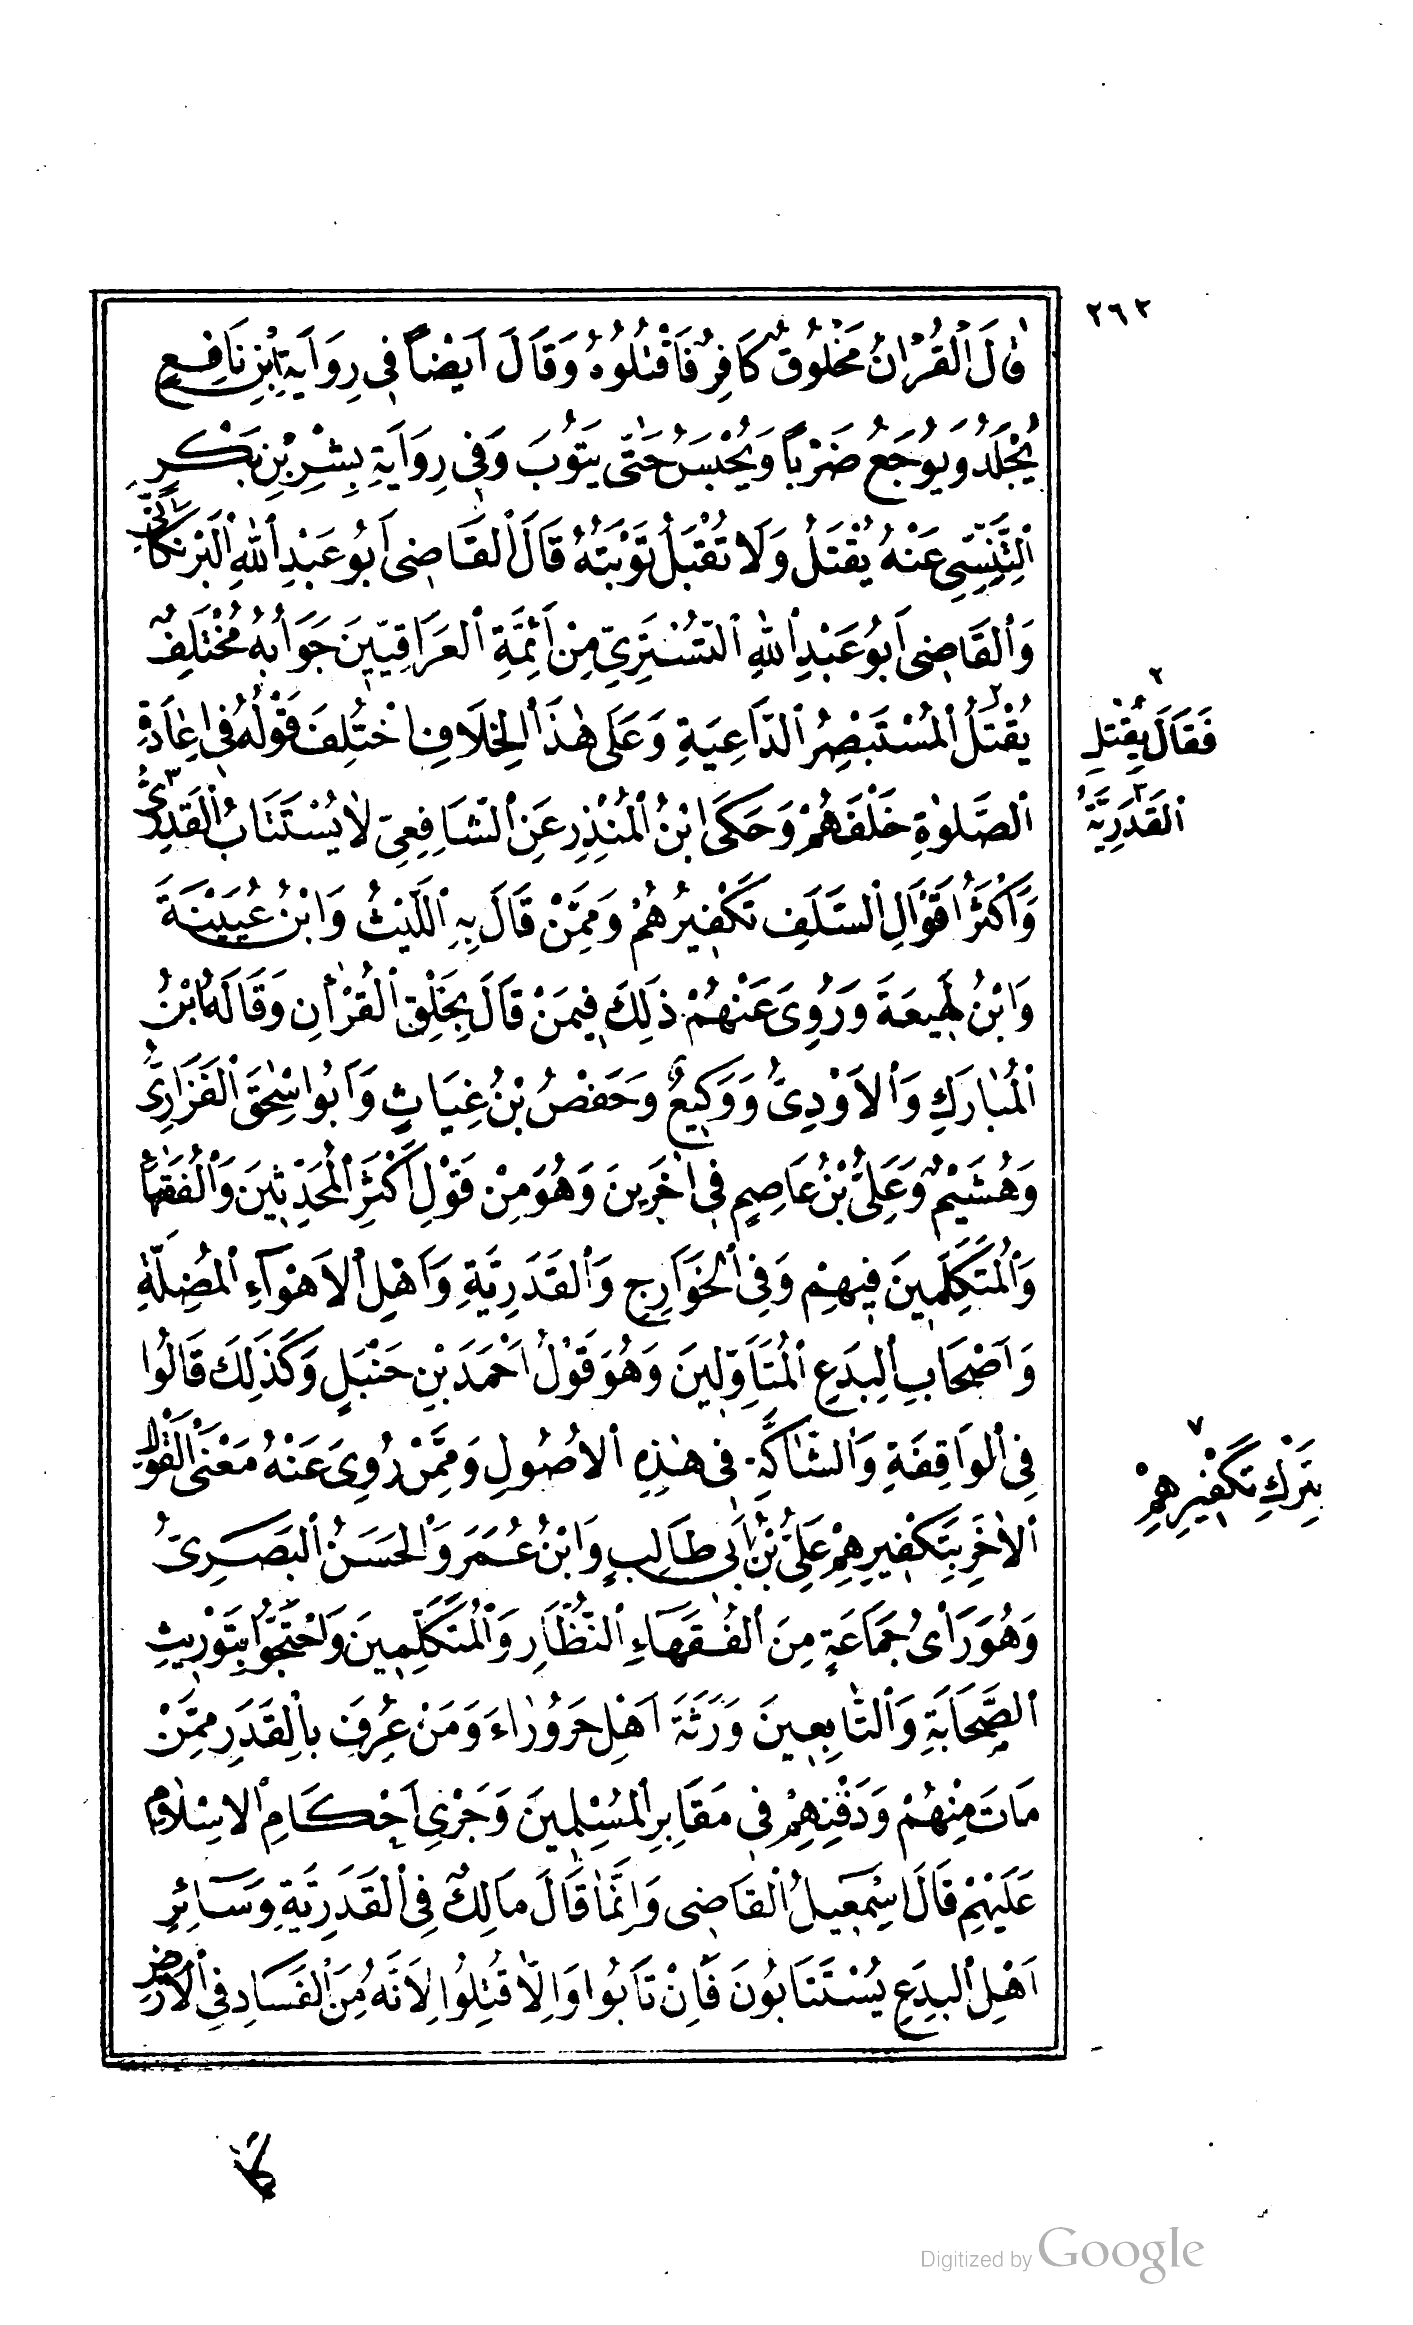 ٢٦٢
قَالَ الْقُرْاٰنُ مَخْلُوقٌ كَافِرٌ فَاقْتُلُوهُ وَقَالَ اَيْضاً فِى رِوَايَةِ ابْنِ نَافِعٍ
يُجْلَدُ وَيُوجَعُ ضَرْباً وَيُحْبَسُ حَتّٰى يَتُوبَ وَفِى رِوَايَةِ بِشْرِ بْنِ بَكْرٍ
التِّنِّيسِىِّ عَنْهُ يُقْتَلُ وَلَا تُقْبَلُ تَوْبَتُهُ قَالَ الْقَاضِى اَبُو عَبْدِ اللهِ الْبَرْنَكَانِىُّ
وَالْقَاضِى اَبُو عَبْدِ اللهِ التُّسْتَرِىِّ مِنْ اَئِمَّةِ الْعَرَاقِيّينَ جَوَابُهُ مُخْتَلِفٌ
يُقْتَلُ الْمُسْتَبْصِرُ الدَّاعِيَةِ وَعَلَى هٰذَا الْخِلَافِ اخْتُلِفَ قَوْلُهُ فِى اِعَادَةِ
الصَّلٰوةِ خَلْفَهُمْ وَحَكَى ابْنُ الْمُنْذِرِ عَنِ الشَّافِعِىِّ لَا يُسْتَتَابُ الْقَدَرِىُّ
وَاَكْثَرُ اَقْوَالِ السَّلَفِ تَكْفِيرُهُمْ وَمِمَّنْ قَالَ بِهِ اللَّيْثُ وَابْنُ عُيَيْنَةَ
وَابْنُ لَهِيعَةَ وَرُوِىَ عَنْهُمْ ذٰلِكَ فِيمَنْ قَالَ بِخَلْقِ الْقُرْاٰنِ وَقَالَهُ ابْنُ
الْمُبَارَكِ وَالْاَوْدِىُّ وَوَكِيعٌ وَحَفْصُ بْنُ غِيَاثٍ وَاَبُو اِسْحٰقَ الْفَزَارِىُّ
وَهُشَيْمٌ وَعَلِىُّ بْنُ عَاصِمٍ فِى اٰخَرِينَ وَهُوَ مِنْ قَوْلِ اَكْثَرِ الْمُحَدِّثِينَ وَالْفُقَهَاءِ
وَالْمُتَكَلِّمِينَ فِيهِمْ وَفِى الْخَوَارِجِ وَالْقَدَرِيَّةِ وَاَهْلِ الْاَهْوَاءِ الْمُضِلَّةِ
وَاَصْحَابِ الْبِدَعِ الْمُتَاَوِّلِينَ وَهُوَ قَوْلُ اَحْمَدَ بْنِ حَنْبَلٍ وَكَذٰلِكَ قَالُوا
فِى الْوَاقِفَةِ وَالشَّاكَّةِ فِى هٰذِهِ الْاُصُولِ وَمِمَّنْ رُوِىَ عَنْهُ مَعْنَى الْقَوْلِ
الْاٰخَرِ بِتَكْفِيرِهِمْ عَلِىُّ بْنُ اَبِى طَالِبٍ وَابْنُ عُمَرَ وَالْحَسَنُ الْبَصَرِىُّ
وَهُوَ رَأْىُ جَمَاعَةٍ مِنَ الْفُقَهَاءِ النُّظَّارِ وَالْمُتَكَلِّمِينَ وَاحْتَجُّوا بِتَوْرِيثِ
الصَّحَابَةِ وَالتَّابِعِينَ وَرَثَةَ اَهْلِ حَرُورَاءَ وَمَنْ عُرِفَ بِالْقَدَرِ مِمَّنْ
مَاتَ مِنْهُمْ وَدَفْنِهِمْ فِى مَقَابِرِ الْمُسْلِمِينَ وَجَرْىِ اَحْكَامِ الْاِسْلَامِ
عَلَيْهِمْ قَالَ اِسْمٰعِيلُ الْقَاضِى وَاِنَّمَا قَالَ مَالِكٌ فِى الْقَدَرِيَّةِ وَسَائِرِ
اَهْلِ الْبِدَعِ يُسْتَتَابُونَ فَاِنْ تَابُوا وَاِلَّا قُتِلُوا لِاَنَّهُ مِنَ الْفَسَادِ فِى الْاَرْضِ
٢
فَقَالَ يُقْتَلُ
الْقَدَرِيَّةُ
٧
بِتَرْكِ تَكْفِيرِهِمْ
كَمَا
Digitized by Google